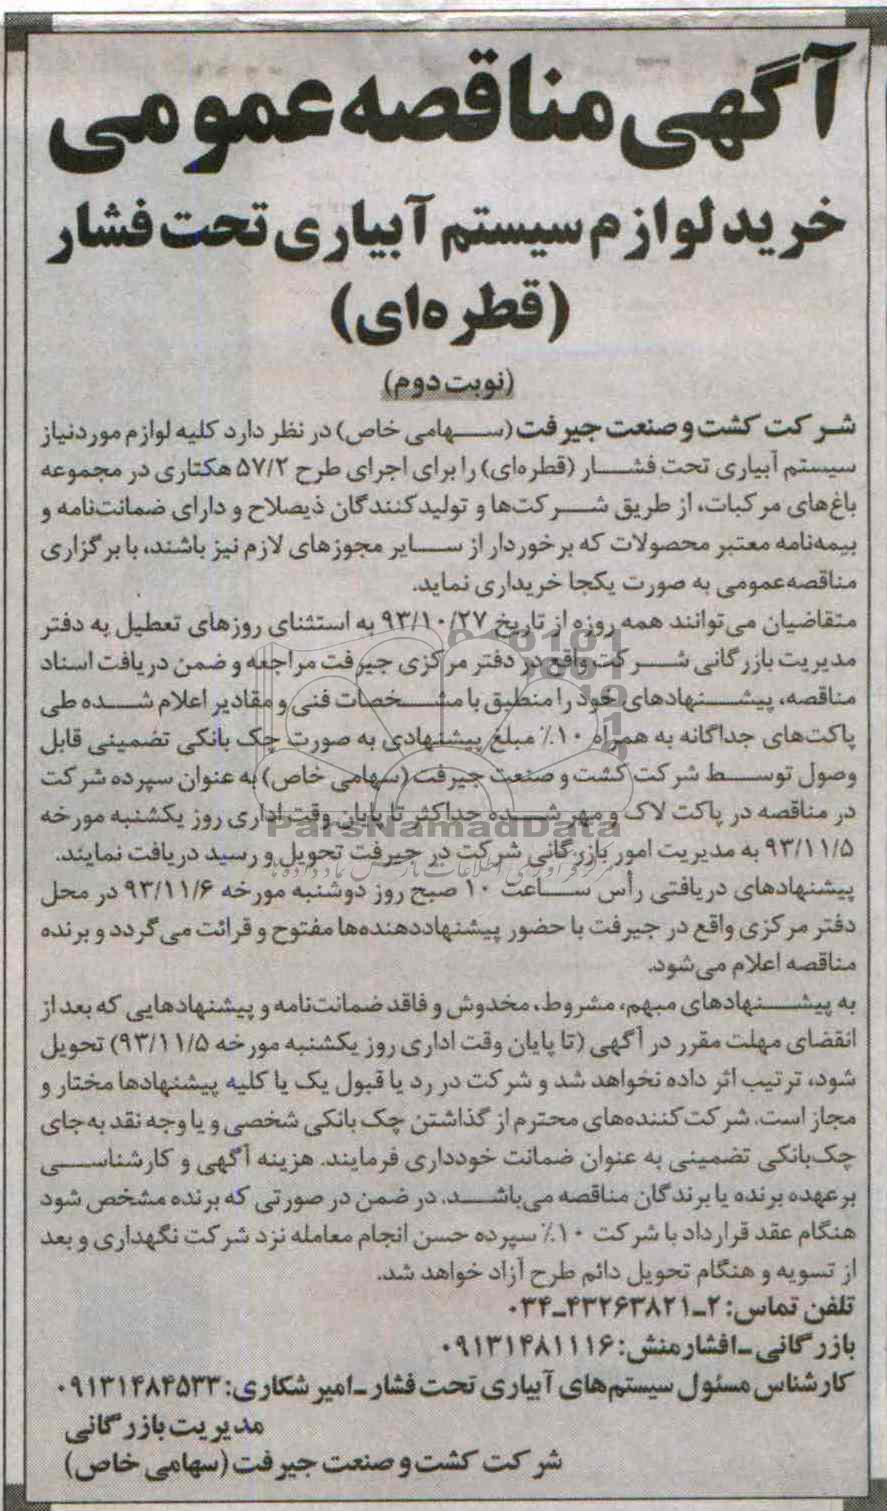 آگهی مناقصه عمومی
خرید لوازم سیستم آبیاری تحت فشار
(قطره‌ای)
(نوبت دوم)
شرکت کشت و صنعت جیرفت (سهامی خاص) در نظر دارد کلیه لوازم موردنیاز
سیستم آبیاری تحت فشار (قطره‌ای) را برای اجرای طرح ۵۷/۲ هکتاری در مجموعه
باغ‌های مرکبات، از طریق شرکت‌ها و تولیدکنندگان ذیصلاح و دارای ضمانت‌نامه و
بیمه‌نامه معتبر محصولات که برخوردار از سایر مجوزهای لازم نیز باشند، با برگزاری
مناقصه‌عمومی به صورت یکجا خریداری نماید.
متقاضیان می‌توانند همه روزه از تاریخ ۹۳/۱۰/۲۷ به استثنای روزهای تعطیل به دفتر
مدیریت بازرگانی شرکت واقع در دفتر مرکزی جیرفت مراجعه و ضمن دریافت اسناد
مناقصه، پیشنهادهای خود را منطبق با مشخصات فنی و مقادیر اعلام شده طی
پاکت‌های جداگانه به همراه ۱۰٪ مبلغ پیشنهادی به صورت چک بانکی تضمینی قابل
وصول توسط شرکت کشت و صنعت جیرفت (سهامی خاص) به عنوان سپرده شرکت
در مناقصه در پاکت لاک و مهر شده حداکثر تا پایان وقت اداری روز یکشنبه مورخه
۹۳/۱۱/۵ به مدیریت امور بازرگانی شرکت در جیرفت تحویل و رسید دریافت نمایند.
ParsNamadData
پیشنهادهای دریافتی رأس ساعت ۱۰ صبح روز دوشنبه مورخه ۹۳/۱۱/۶ در محل
دفتر مرکزی واقع در جیرفت با حضور پیشنهاددهنده‌ها مفتوح و قرائت می‌گردد و برنده
مناقصه اعلام می‌شود.
به پیشنهادهای مبهم، مشروط، مخدوش و فاقد ضمانت‌نامه و پیشنهادهایی که بعد از
انقضای مهلت مقرر در آگهی (تا پایان وقت اداری روز یکشنبه مورخه ۹۳/۱۱/۵) تحویل
شود، ترتیب اثر داده نخواهد شد و شرکت در رد یا قبول یک یا کلیه پیشنهادها مختار و
مجاز است. شرکت‌کننده‌های محترم از گذاشتن چک بانکی شخصی و یا وجه نقد به‌جای
چک‌بانکی تضمینی به عنوان ضمانت خودداری فرمایند. هزینه آگهی و کارشناسی
برعهده برنده یا برندگان مناقصه می‌باشد. در ضمن در صورتی که برنده مشخص شود
هنگام عقد قرارداد با شرکت ۱۰٪ سپرده حسن انجام معامله نزد شرکت نگهداری و بعد
از تسویه و هنگام تحویل دائم طرح آزاد خواهد شد.
تلفن تماس: ۲ـ۴۳۲۶۳۸۲۱ـ۰۳۴
بازرگانی ـ افشارمنش: ۰۹۱۳۱۴۸۱۱۱۶
کارشناس مسئول سیستم‌های آبیاری تحت فشار ـ امیر شکاری: ۰۹۱۳۱۴۸۴۵۳۳
مدیریت بازرگانی
شرکت کشت و صنعت جیرفت (سهامی خاص)